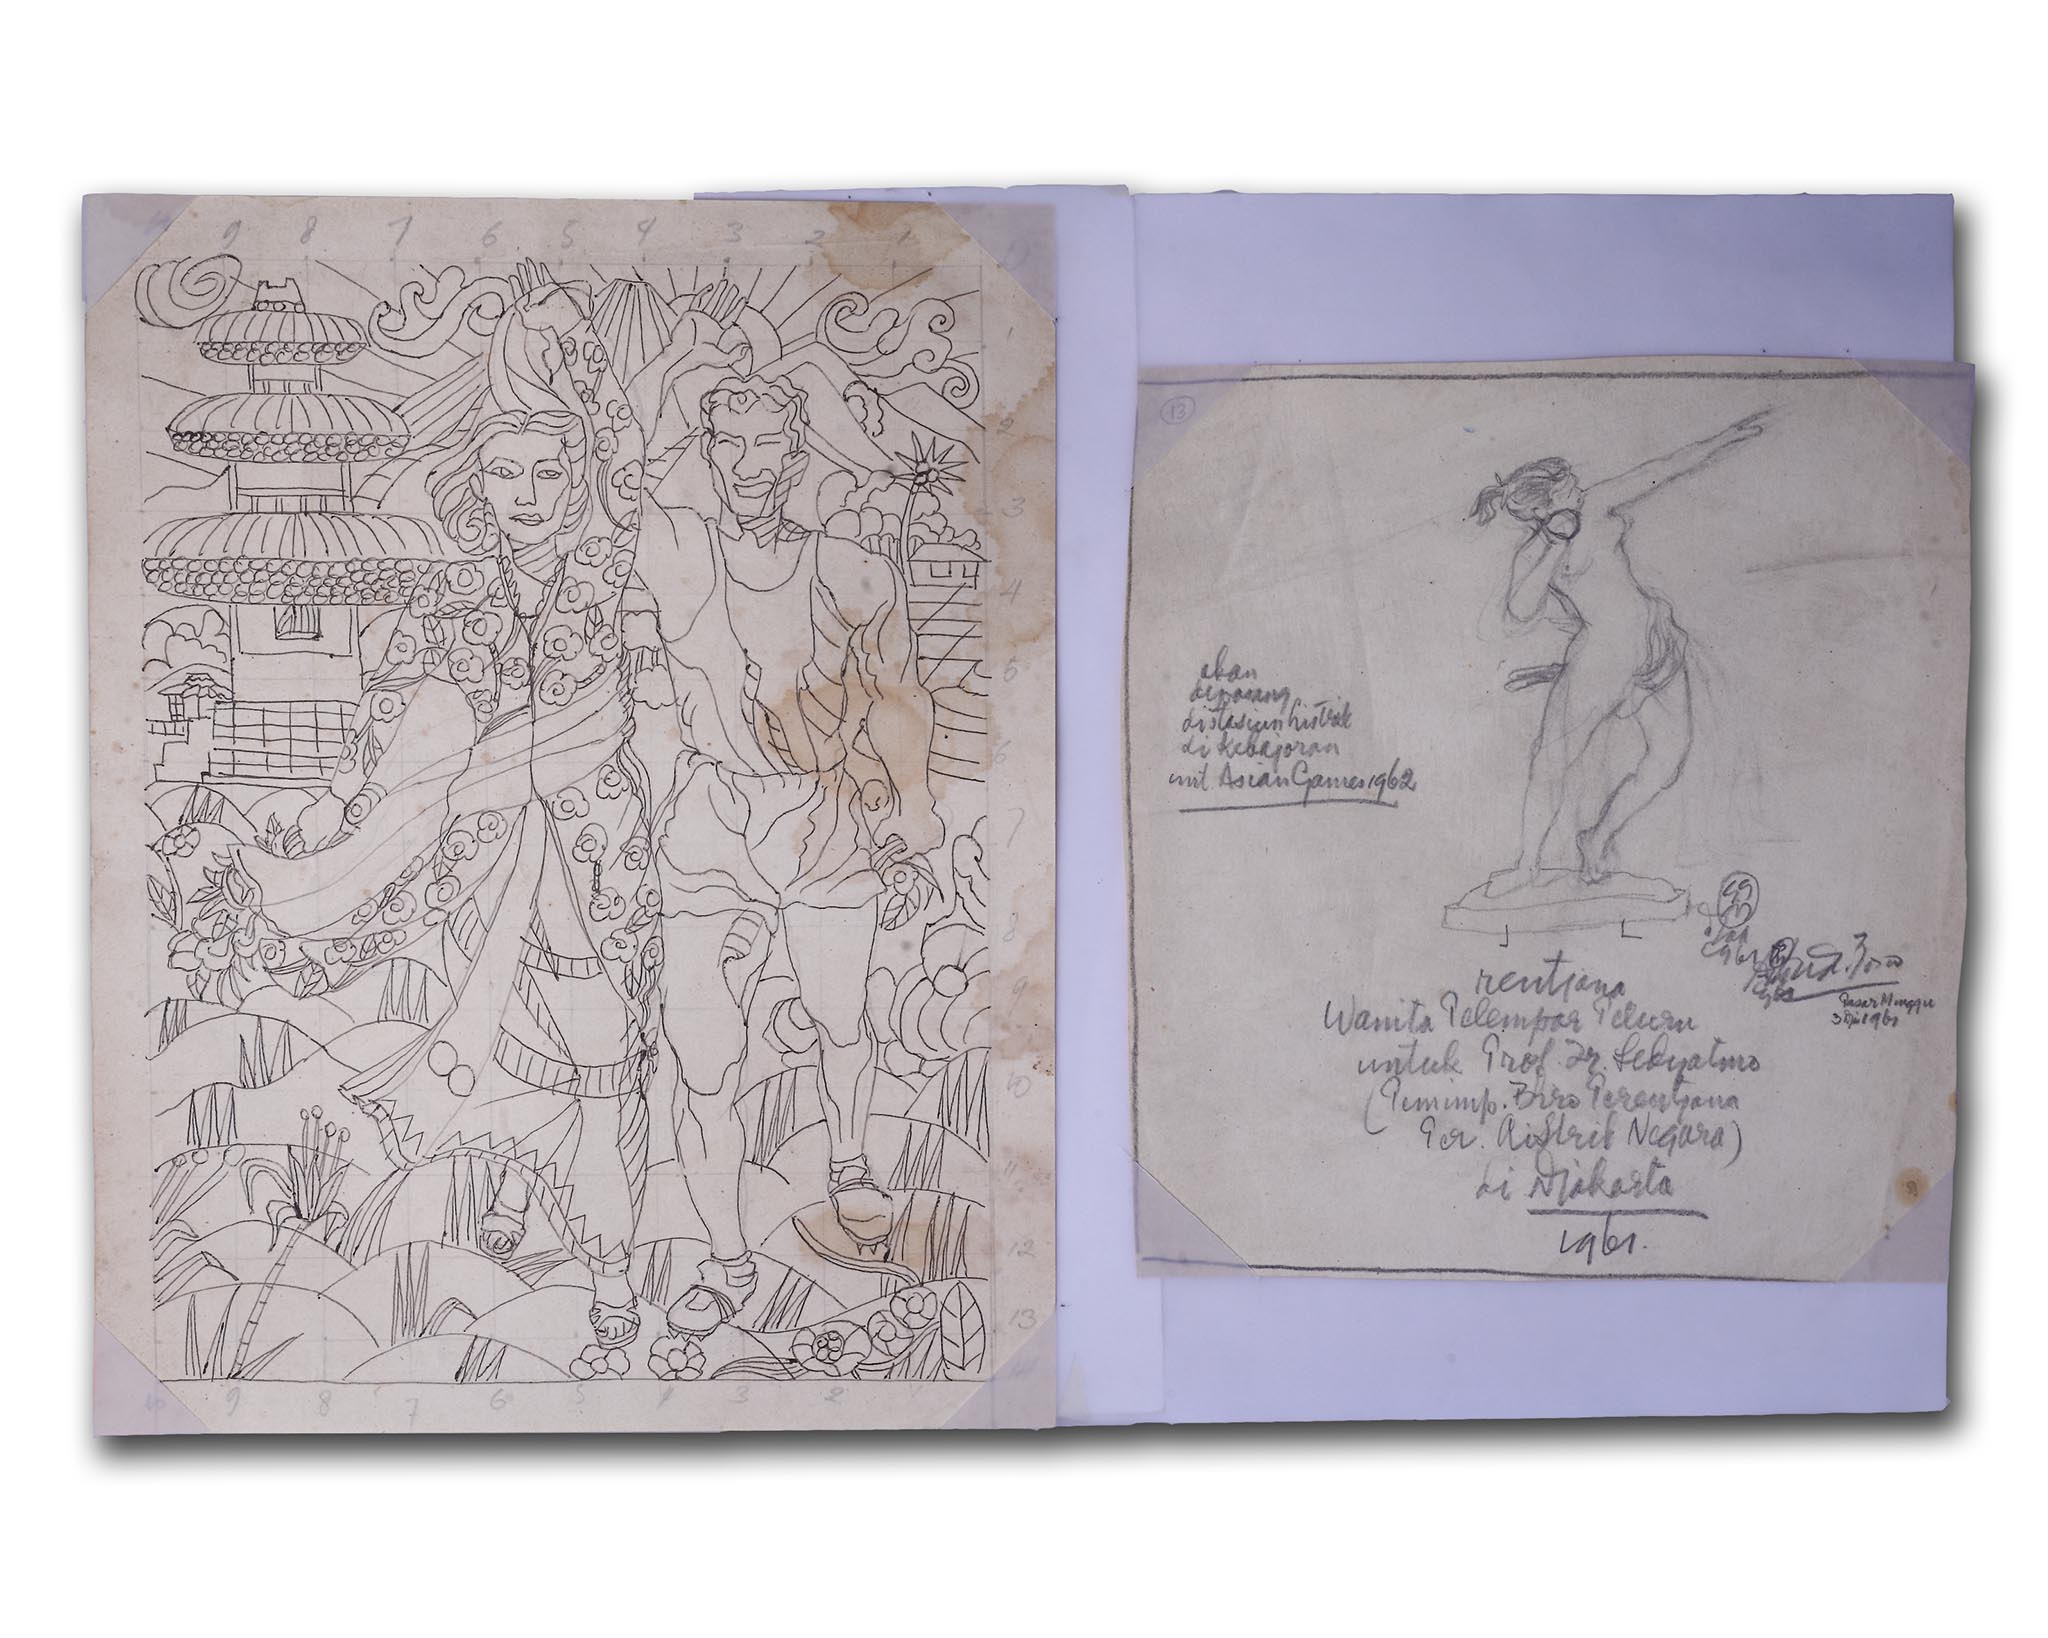 9 8 7 6 5 4 3 2 1
1
2
3
4
5
6
7
8
9
10
11
12
13
14
10 9 8 7 6 5 4 3 2 1
13
akan
dipasang
distasiun listrik
di Kebajoran
unt. Asian Games 1962
1961
1961
Pasar Minggu
1961
rentjana
Wanita Pelempar Peluru
untuk Prof. Ir. Sedyatmo
(Pemimp. Biro Perentjana
Listrik Negara)
di Djakarta
1961.